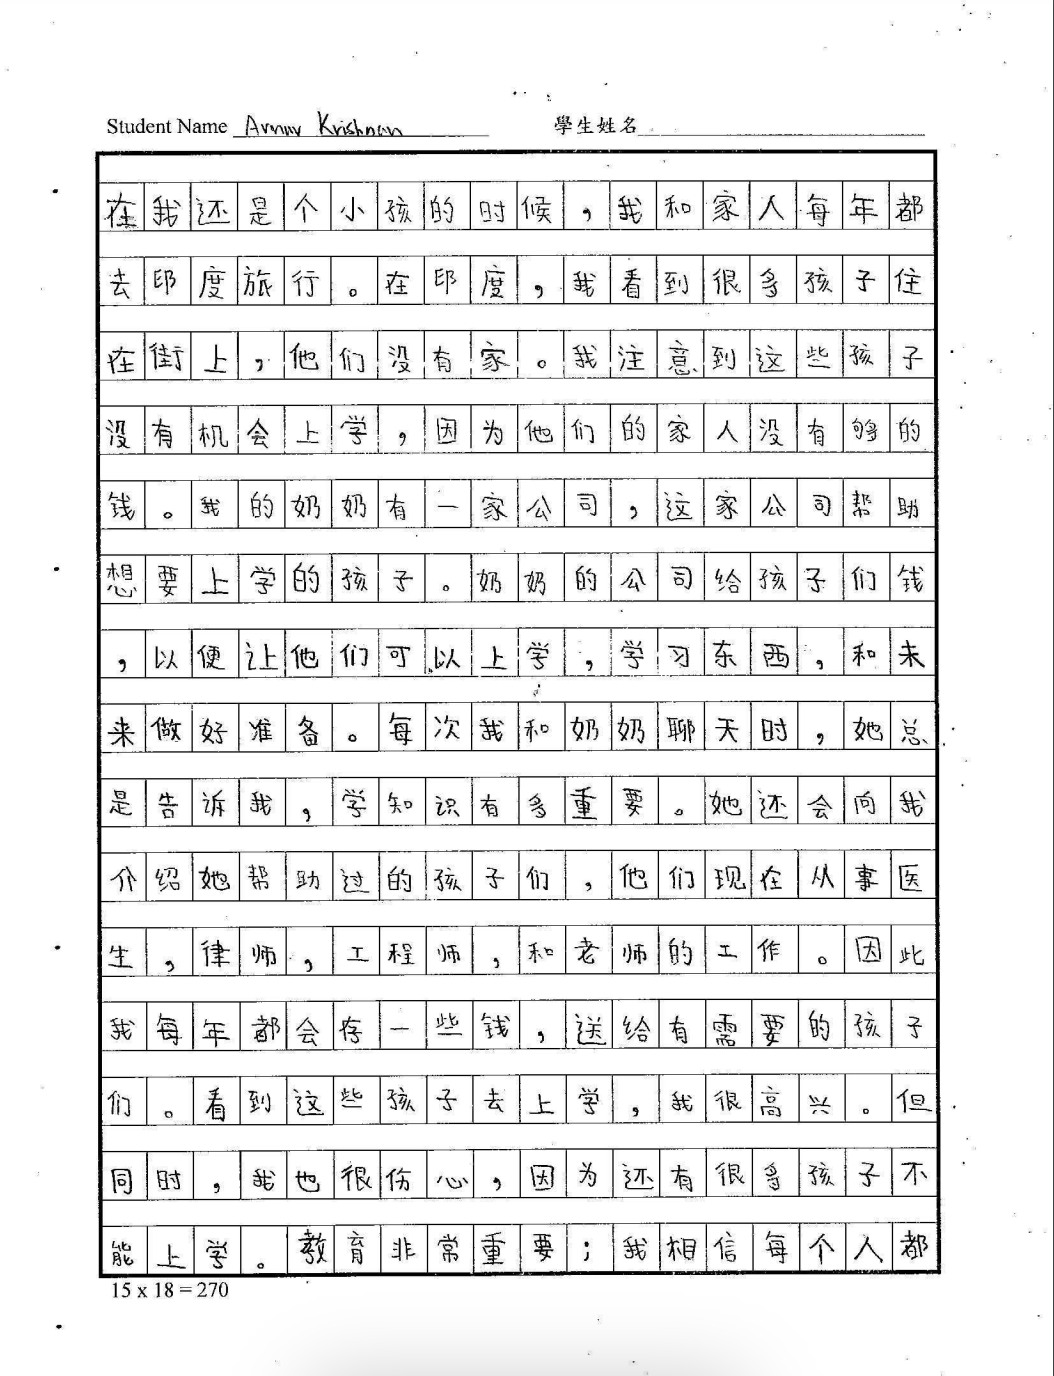 Student Name Arnav Krishnan 學生姓名
在我还是个小孩的时候，我和家人每年都
去印度旅行。在印度，我看到很多孩子住
在街上，他们没有家。我注意到这些孩子
没有机会上学，因为他们的家人没有够的
钱。我的奶奶有一家公司，这家公司帮助
想要上学的孩子。奶奶的公司给孩子们钱
，以便让他们可以上学，学习东西，和未
来做好准备。每次我和奶奶聊天时，她总
是告诉我，学知识有多重要。她还会向我
介绍她帮助过的孩子们，他们现在从事医
生，律师，工程师，和老师的工作。因此
我每年都会存一些钱，送给有需要的孩子
们。看到这些孩子去上学，我很高兴。但
同时，我也很伤心，因为还有很多孩子不
能上学。教育非常重要；我相信每个人都
15 x 18 = 270